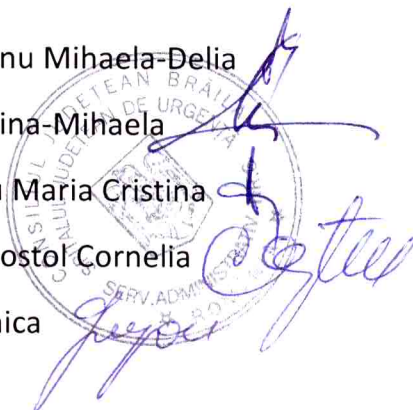 nu Mihaela-Delia
ina-Mihaela
Maria Cristina
ostol Cornelia
nica
CONSILIUL JUDEȚEAN BRĂILA
SPITALUL JUDEȚEAN DE URGENȚĂ
SERV.ADMINISTRATIV